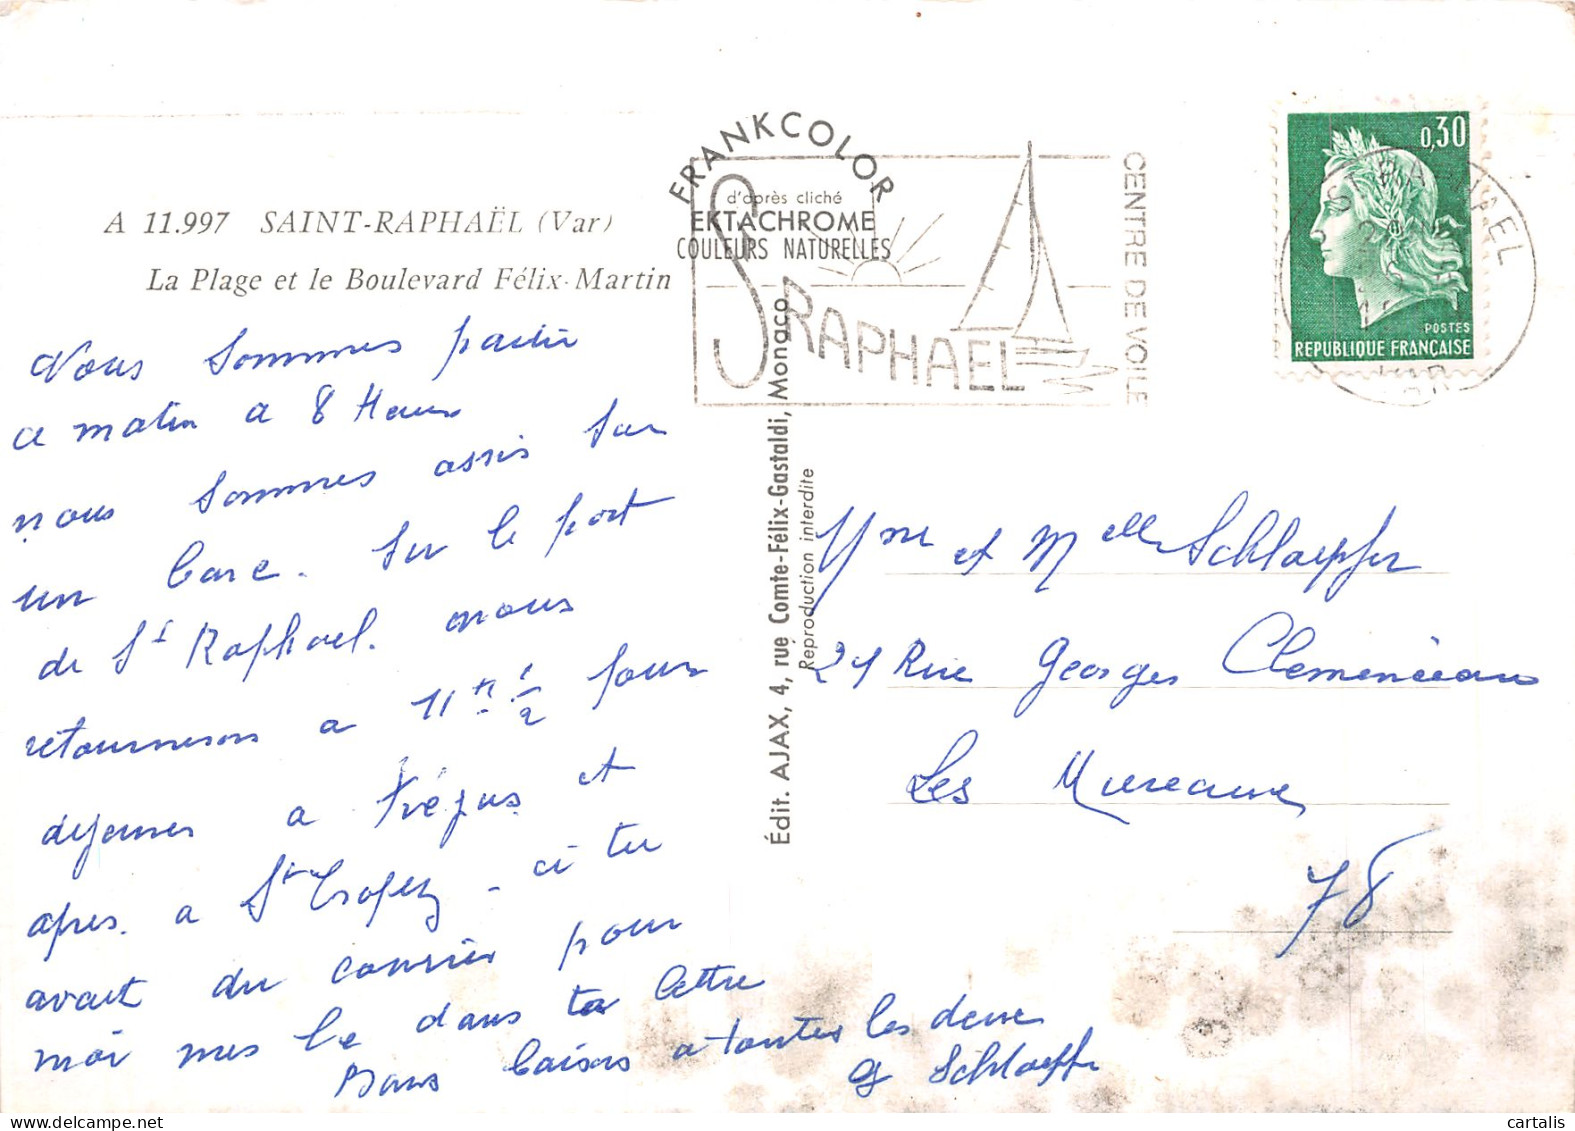 A 11.997 SAINT-RAPHAËL (Var)
La Plage et le Boulevard Félix-Martin
Nous sommes partir
ce matin a 8 Heures
nous sommes assis sur
un banc. sur le port
de St Raphael. nous
retournerons a 11 h 1/2 pour
dejeuner a Fréjus et
apres. a St Tropez - si tu
avait du courrier pour
moi mes le dans ta lettre
Bons baisers a toutes les deux
G Schlaepfer
FRANKCOLOR
d'après cliché
EKTACHROME
COULEURS NATURELLES
ST RAPHAEL
CENTRE DE VOILE
Édit. AJAX, 4, rue Comte-Félix-Gastaldi, Monaco
Reproduction interdite
0,30
POSTES
REPUBLIQUE FRANÇAISE
ST RAPHAEL
VAR
Mme et Melle Schlaepfer
21 Rue Georges Clemenceau
Les Mureaux
78
cartalis